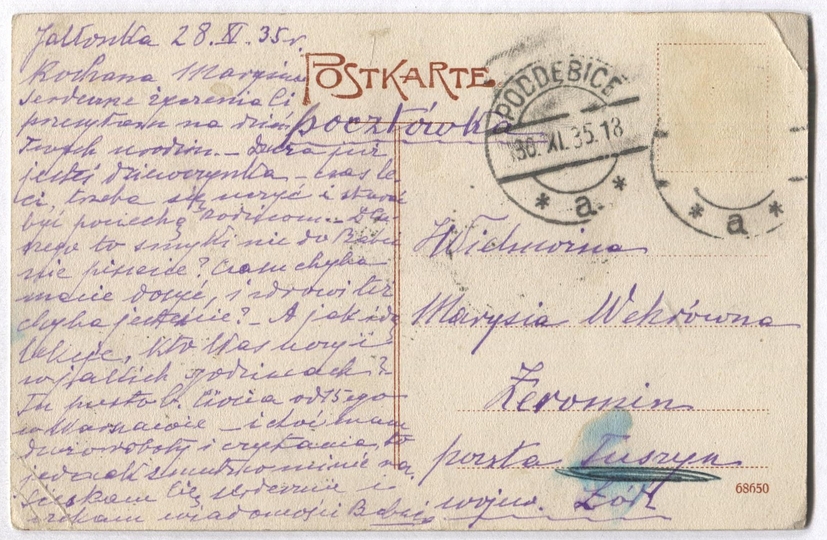 Jałłonka 28.XI.35 r.
Kochana Marysiu
serdeczne życzenia Ci
przesyłam na dzień
Twych urodzin. – Duża już
jesteś dziewczynka – czas le
ci, trzeba się uczyć i starać
być pociechą rodzicom. – Dla-
czego to smyki nie do Babci
nie piszecie? Czasu chyba
macie dosyć, i zdrowi też
chyba jesteście? – A jak idą
lekcje, kto Was uczy i
w jakich godzinach?
Tu pusto b. Ciocia od 15-go
w Warszawie – i choć mam
dużo roboty i czytania, to
jednak smutno mi
Ściskam Cię serdecznie i
czekam wiadomości Babcia
POSTKARTE
pocztówka
PODDĘBICE
30.XI.35.18
* a *
* a *
WPielmożna
Marysia Wekrówna
Żeromin
poczta Tuszyn
wojew. Łódź
68650